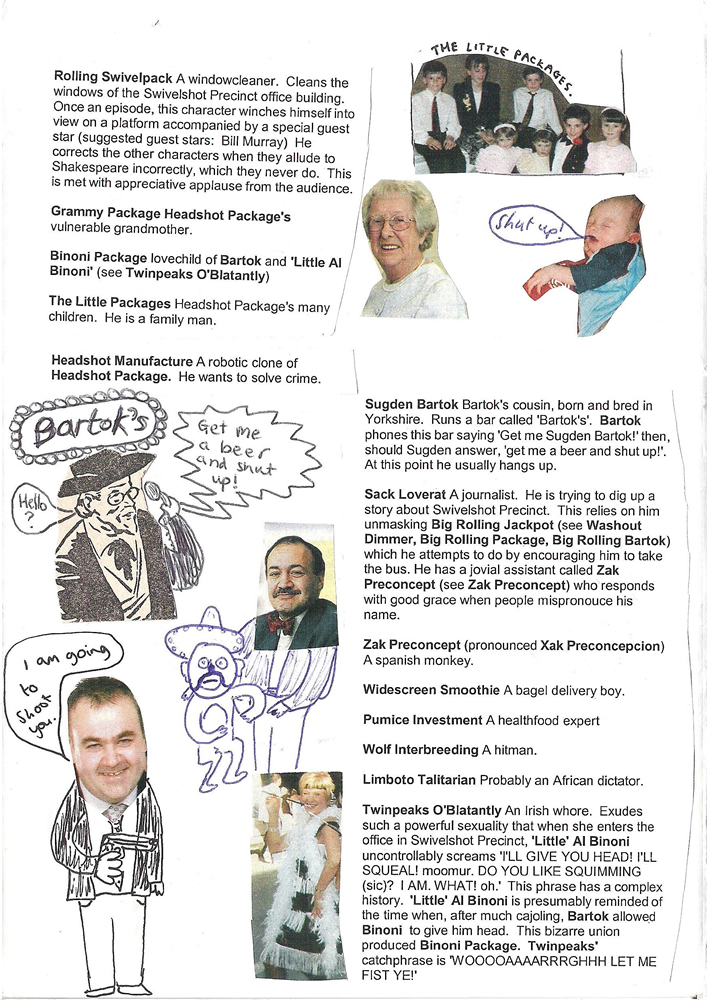 Rolling Swivelpack A windowcleaner. Cleans the
windows of the Swivelshot Precinct office building.
Once an episode, this character winches himself into
view on a platform accompanied by a special guest
star (suggested guest stars: Bill Murray) He
corrects the other characters when they allude to
Shakespeare incorrectly, which they never do. This
is met with appreciative applause from the audience.
Grammy Package Headshot Package's
vulnerable grandmother.
Binoni Package lovechild of Bartok and 'Little Al
Binoni' (see Twinpeaks O'Blatantly)
The Little Packages Headshot Package's many
children. He is a family man.
Headshot Manufacture A robotic clone of
Headshot Package. He wants to solve crime.
THE LITTLE PACKAGES.
Shut up!
Bartok's
Get me
a beer
and shut
up!
Hello
?
I am going
to
shoot
you.
Sugden Bartok Bartok's cousin, born and bred in
Yorkshire. Runs a bar called 'Bartok's'. Bartok
phones this bar saying 'Get me Sugden Bartok!' then,
should Sugden answer, 'get me a beer and shut up!'.
At this point he usually hangs up.
Sack Loverat A journalist. He is trying to dig up a
story about Swivelshot Precinct. This relies on him
unmasking Big Rolling Jackpot (see Washout
Dimmer, Big Rolling Package, Big Rolling Bartok)
which he attempts to do by encouraging him to take
the bus. He has a jovial assistant called Zak
Preconcept (see Zak Preconcept) who responds
with good grace when people mispronouce his
name.
Zak Preconcept (pronounced Xak Preconcepcion)
A spanish monkey.
Widescreen Smoothie A bagel delivery boy.
Pumice Investment A healthfood expert
Wolf Interbreeding A hitman.
Limboto Talitarian Probably an African dictator.
Twinpeaks O'Blatantly An Irish whore. Exudes
such a powerful sexuality that when she enters the
office in Swivelshot Precinct, 'Little' Al Binoni
uncontrollably screams 'I'LL GIVE YOU HEAD! I'LL
SQUEAL! moomur. DO YOU LIKE SQUIMMING
(sic)? I AM. WHAT! oh.' This phrase has a complex
history. 'Little' Al Binoni is presumably reminded of
the time when, after much cajoling, Bartok allowed
Binoni to give him head. This bizarre union
produced Binoni Package. Twinpeaks'
catchphrase is 'WOOOOAAAARRRGHHH LET ME
FIST YE!'